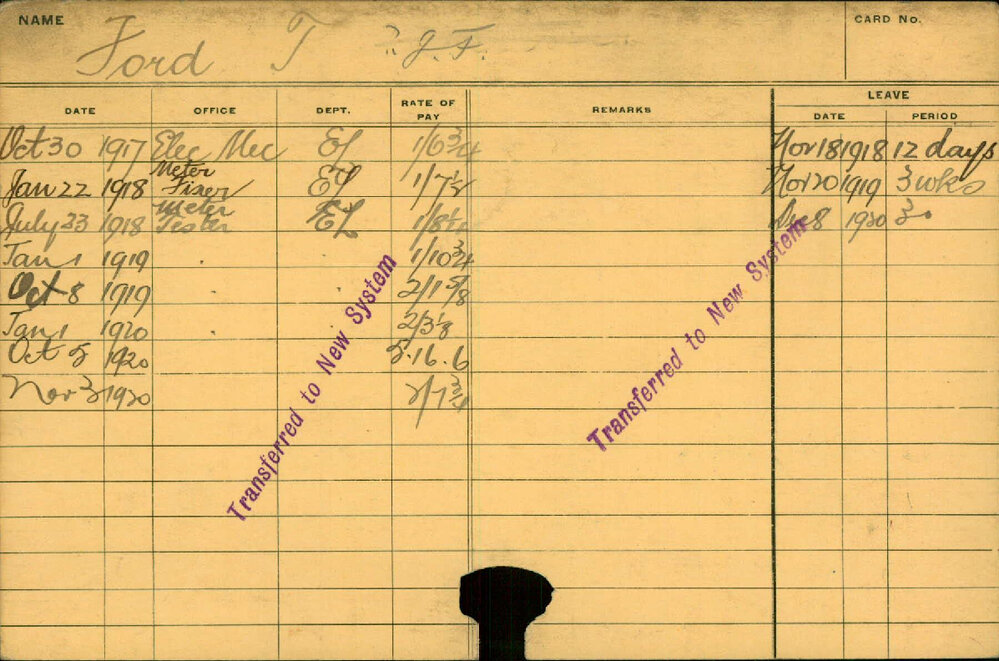 NAME Ford T ? J. F. CARD No.
LEAVE
DATE OFFICE DEPT. RATE OF PAY REMARKS DATE PERIOD
Oct 30 1917 Elec Mec El 1/6 3/4 Nov 18 1918 12 days
Jan 22 1918 Meter Fixer El 1/7 1/2 Nov 20 1919 3 wks
July 23 1918 Meter Tester EL 1/8 8 1920 3 "
Jan 1 1919 " " 1/10 3/4
Oct 8 1919 " " 2/1 5/8
Jan 1 1920 " 2/3 1/8
Oct 5 1920 5.16.6
Nov 3 1920 2/7 3/4
Transferred to New System
Transferred to New System